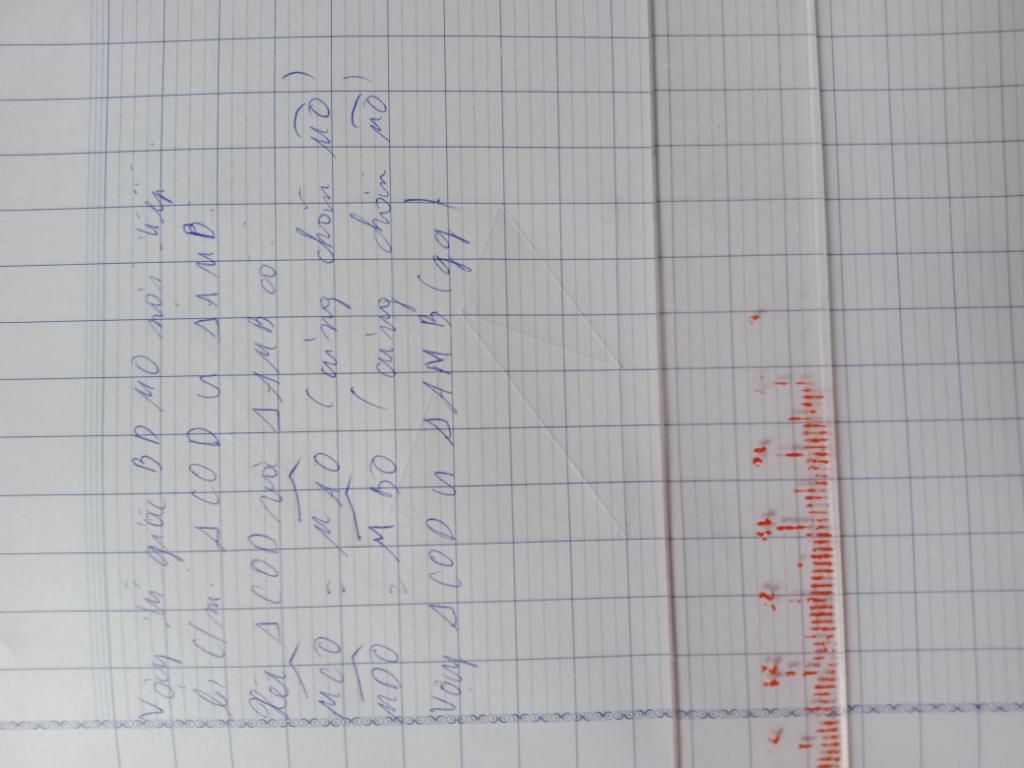 Vậy tứ giác BDMO nội tiếp
b. C/m: Δ COD ∽ Δ AMB.
Xét Δ COD và Δ AMB có:
MCO = MAO (cùng chắn MO)
MDO = MBO (cùng chắn MO)
Vậy Δ COD ∽ Δ AMB (gg).